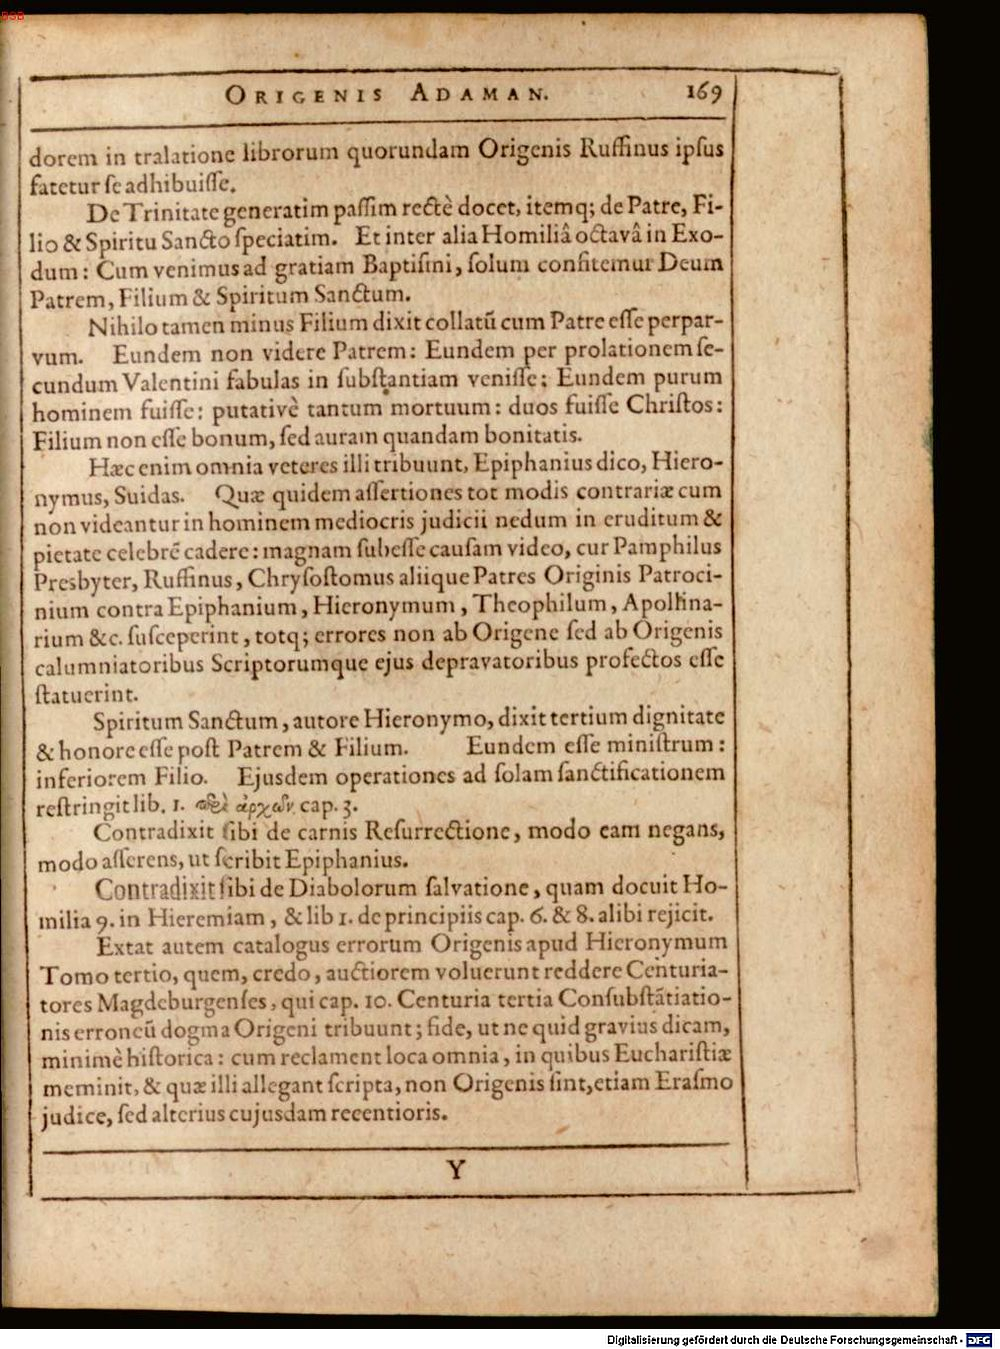 BSB
ORIGENIS ADAMAN. 169
dorem in tralatione librorum quorundam Origenis Ruffinus ipſus
fatetur ſe adhibuiſſe.
De Trinitate generatim paſſim rectè docet, itemq; de Patre, Fi-
lio & Spiritu Sancto ſpeciatim. Et inter alia Homiliâ octavâ in Exo-
dum: Cum venimus ad gratiam Baptiſmi, ſolum confitemur Deum
Patrem, Filium & Spiritum Sanctum.
Nihilo tamen minus Filium dixit collatū cum Patre eſſe perpar-
vum. Eundem non videre Patrem: Eundem per prolationem ſe-
cundum Valentini fabulas in ſubſtantiam veniſſe: Eundem purum
hominem fuiſſe: putativè tantum mortuum: duos fuiſſe Chriſtos:
Filium non eſſe bonum, ſed auram quandam bonitatis.
Hæc enim omnia veteres illi tribuunt, Epiphanius dico, Hiero-
nymus, Suidas. Quæ quidem aſſertiones tot modis contrariæ cum
non videantur in hominem mediocris judicii nedum in eruditum &
pietate celebrē cadere: magnam ſubeſſe cauſam video, cur Pamphilus
Presbyter, Ruffinus, Chryſoſtomus aliique Patres Originis Patroci-
nium contra Epiphanium, Hieronymum, Theophilum, Apollina-
rium &c. ſuſceperint, totq; errores non ab Origene ſed ab Origenis
calumniatoribus Scriptorumque ejus depravatoribus profectos eſſe
ſtatuerint.
Spiritum Sanctum, autore Hieronymo, dixit tertium dignitate
& honore eſſe poſt Patrem & Filium. Eundem eſſe miniſtrum:
inferiorem Filio. Ejusdem operationes ad ſolam ſanctificationem
reſtringit lib. 1. περὶ ἀρχῶν cap. 3.
Contradixit ſibi de carnis Reſurrectione, modo eam negans,
modo aſſerens, ut ſcribit Epiphanius.
Contradixit ſibi de Diabolorum ſalvatione, quam docuit Ho-
milia 9. in Hieremiam, & lib 1. de principiis cap. 6. & 8. alibi rejicit.
Extat autem catalogus errorum Origenis apud Hieronymum
Tomo tertio, quem, credo, auctiorem voluerunt reddere Centuria-
tores Magdeburgenſes, qui cap. 10. Centuria tertia Conſubſtātiatio-
nis erroneū dogma Origeni tribuunt; fide, ut ne quid gravius dicam,
minimè hiſtorica: cum reclament loca omnia, in quibus Euchariſtiæ
meminit, & quæ illi allegant ſcripta, non Origenis ſint, etiam Eraſmo
judice, ſed alterius cujusdam recentioris.
Y
Digitalisierung gefördert durch die Deutsche Forschungsgemeinschaft - DFG